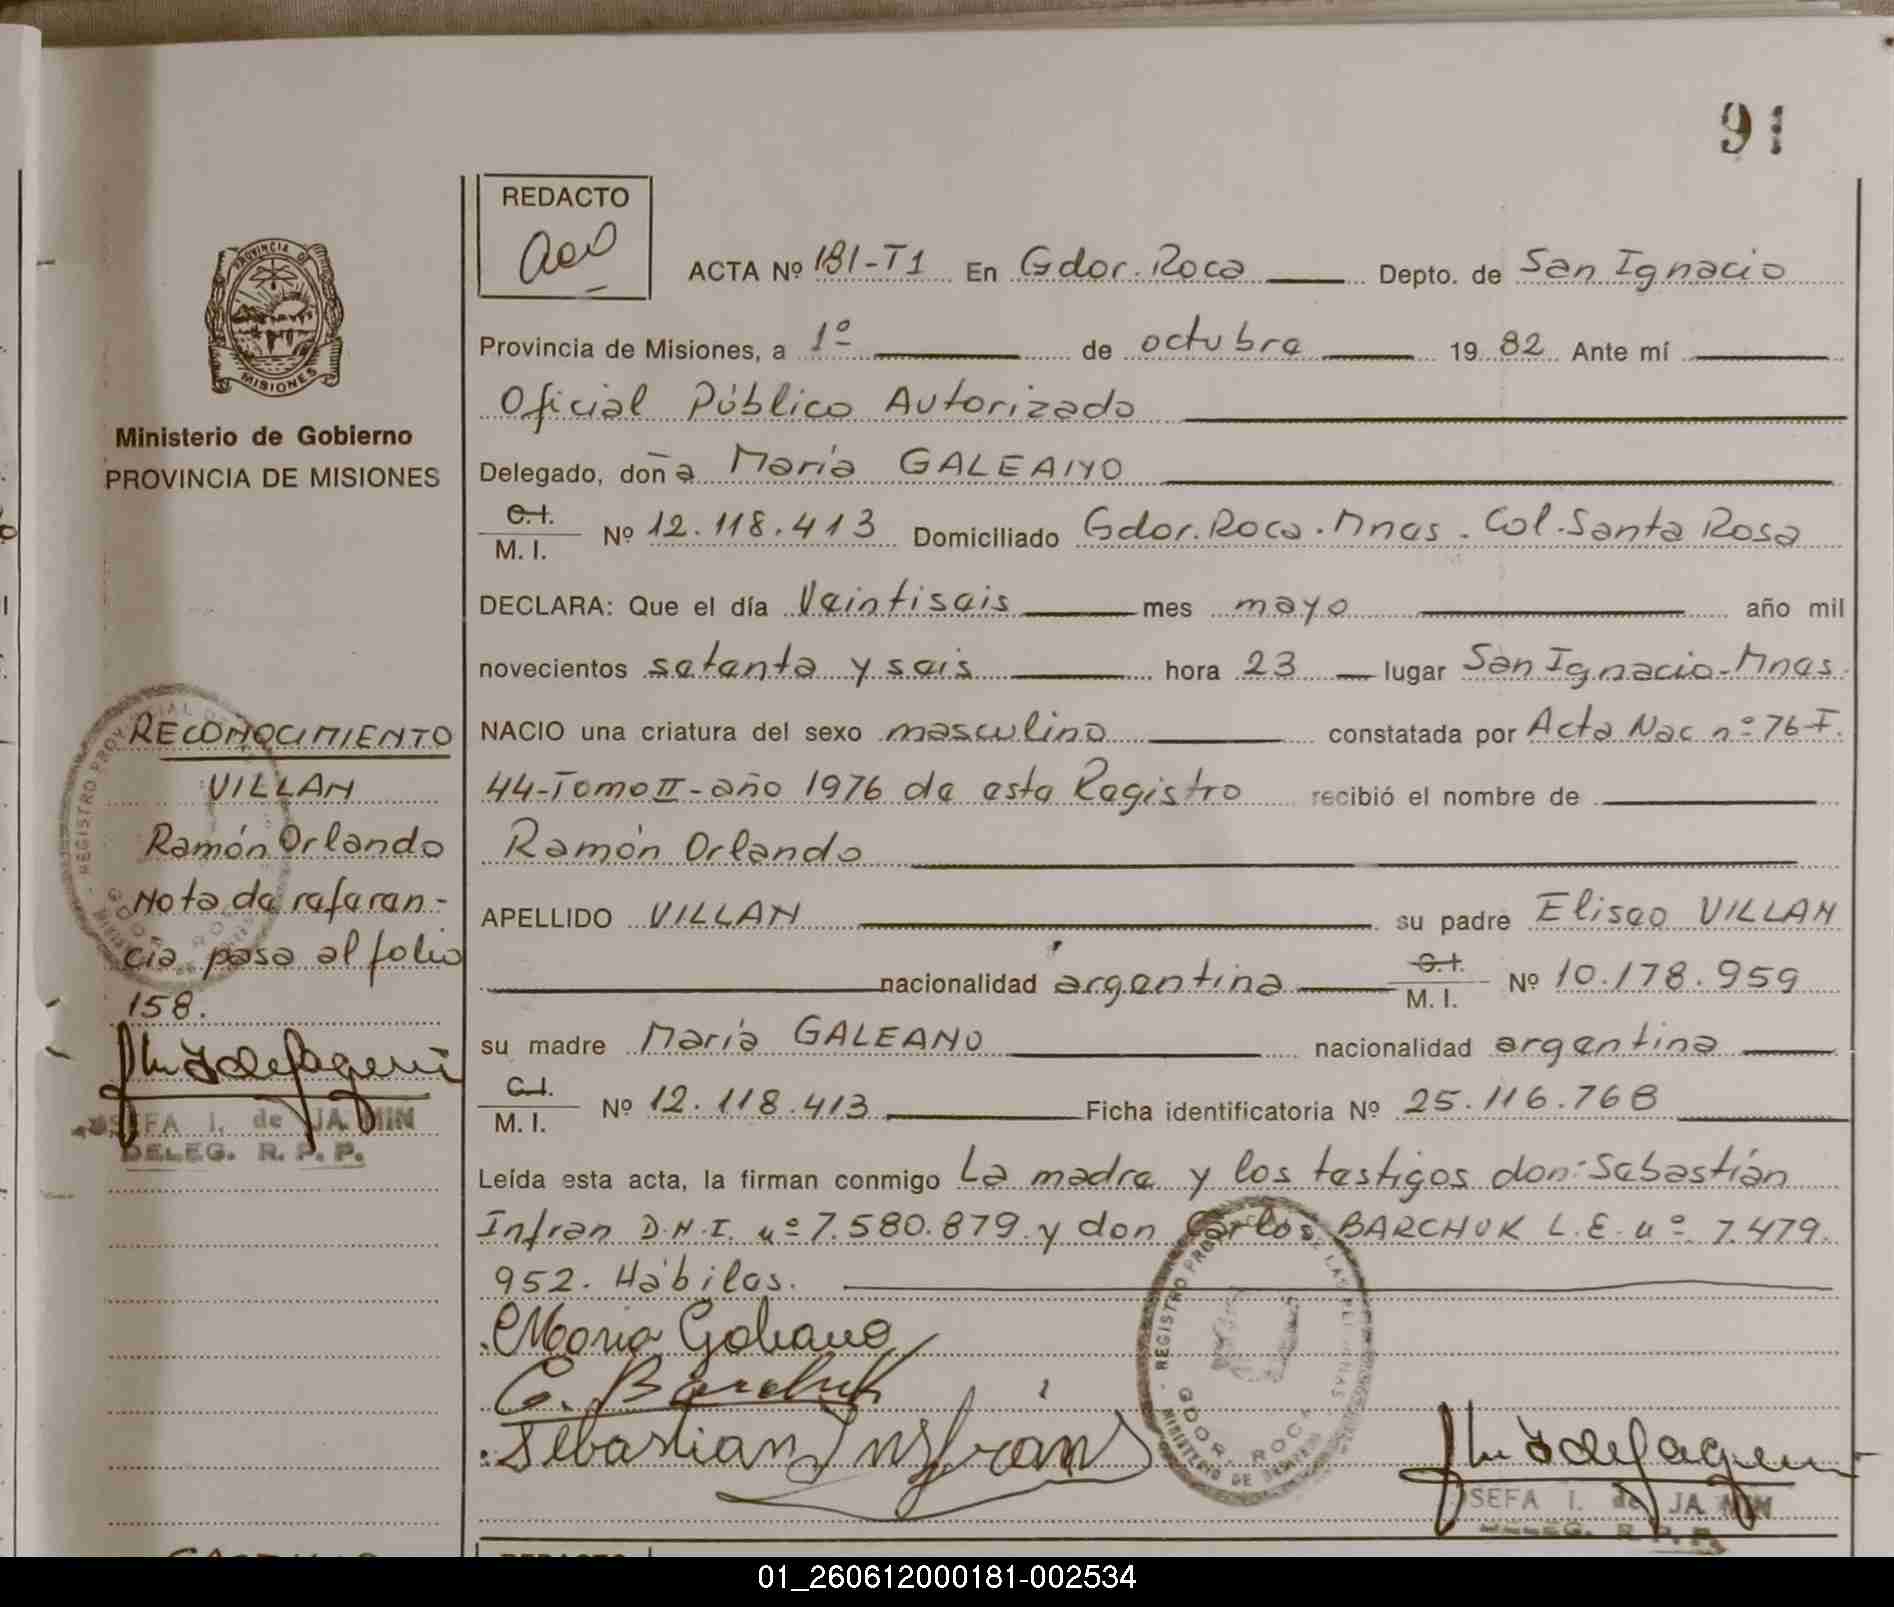 91
REDACTO
ACTA Nº 181-T1 En Gdor. Roca Depto. de San Ignacio
Provincia de Misiones, a 1º de octubre 1982 Ante mí
Oficial Público Autorizado
Delegado, doña María GALEANO
C.I. / M.I. Nº 12.118.413 Domiciliado Gdor. Roca. Mnes. Col. Santa Rosa
DECLARA: Que el día Veintiseis mes mayo año mil
novecientos setenta y seis hora 23 lugar San Ignacio-Mnes.
NACIO una criatura del sexo masculino constatada por Acta Nac nº 76-F.
44-Tomo II-año 1976 de este Registro recibió el nombre de
Ramón Orlando
APELLIDO VILLAN su padre Eliseo VILLAN
nacionalidad argentina C.I. / M.I. Nº 10.178.959
su madre María GALEANO nacionalidad argentina
C.I. / M.I. Nº 12.118.413 Ficha identificatoria Nº 25.116.768
Leída esta acta, la firman conmigo La madre y los testigos don: Sebastián
Infran D.N.I. nº 7.580.879 y don Carlos BARCHUK L.E. nº 7.479.
952. Hábiles.
María Galeano
C. Barchuk
Sebastian Insfran
REGISTRO PROV
GDOR. ROCA
MINISTERIO DE
SEFA I. de JA MIN
DELEG. R. P. P.
PROVINCIA D
MISIONES
Ministerio de Gobierno
PROVINCIA DE MISIONES
RECONOCIMIENTO
VILLAN
Ramón Orlando
Nota de referen-
cia pasa al folio
158.
SEFA I. de JA MIN
DELEG. R. P. P.
REGISTRO PROVINCIAL D
REDACTO
01_260612000181-002534